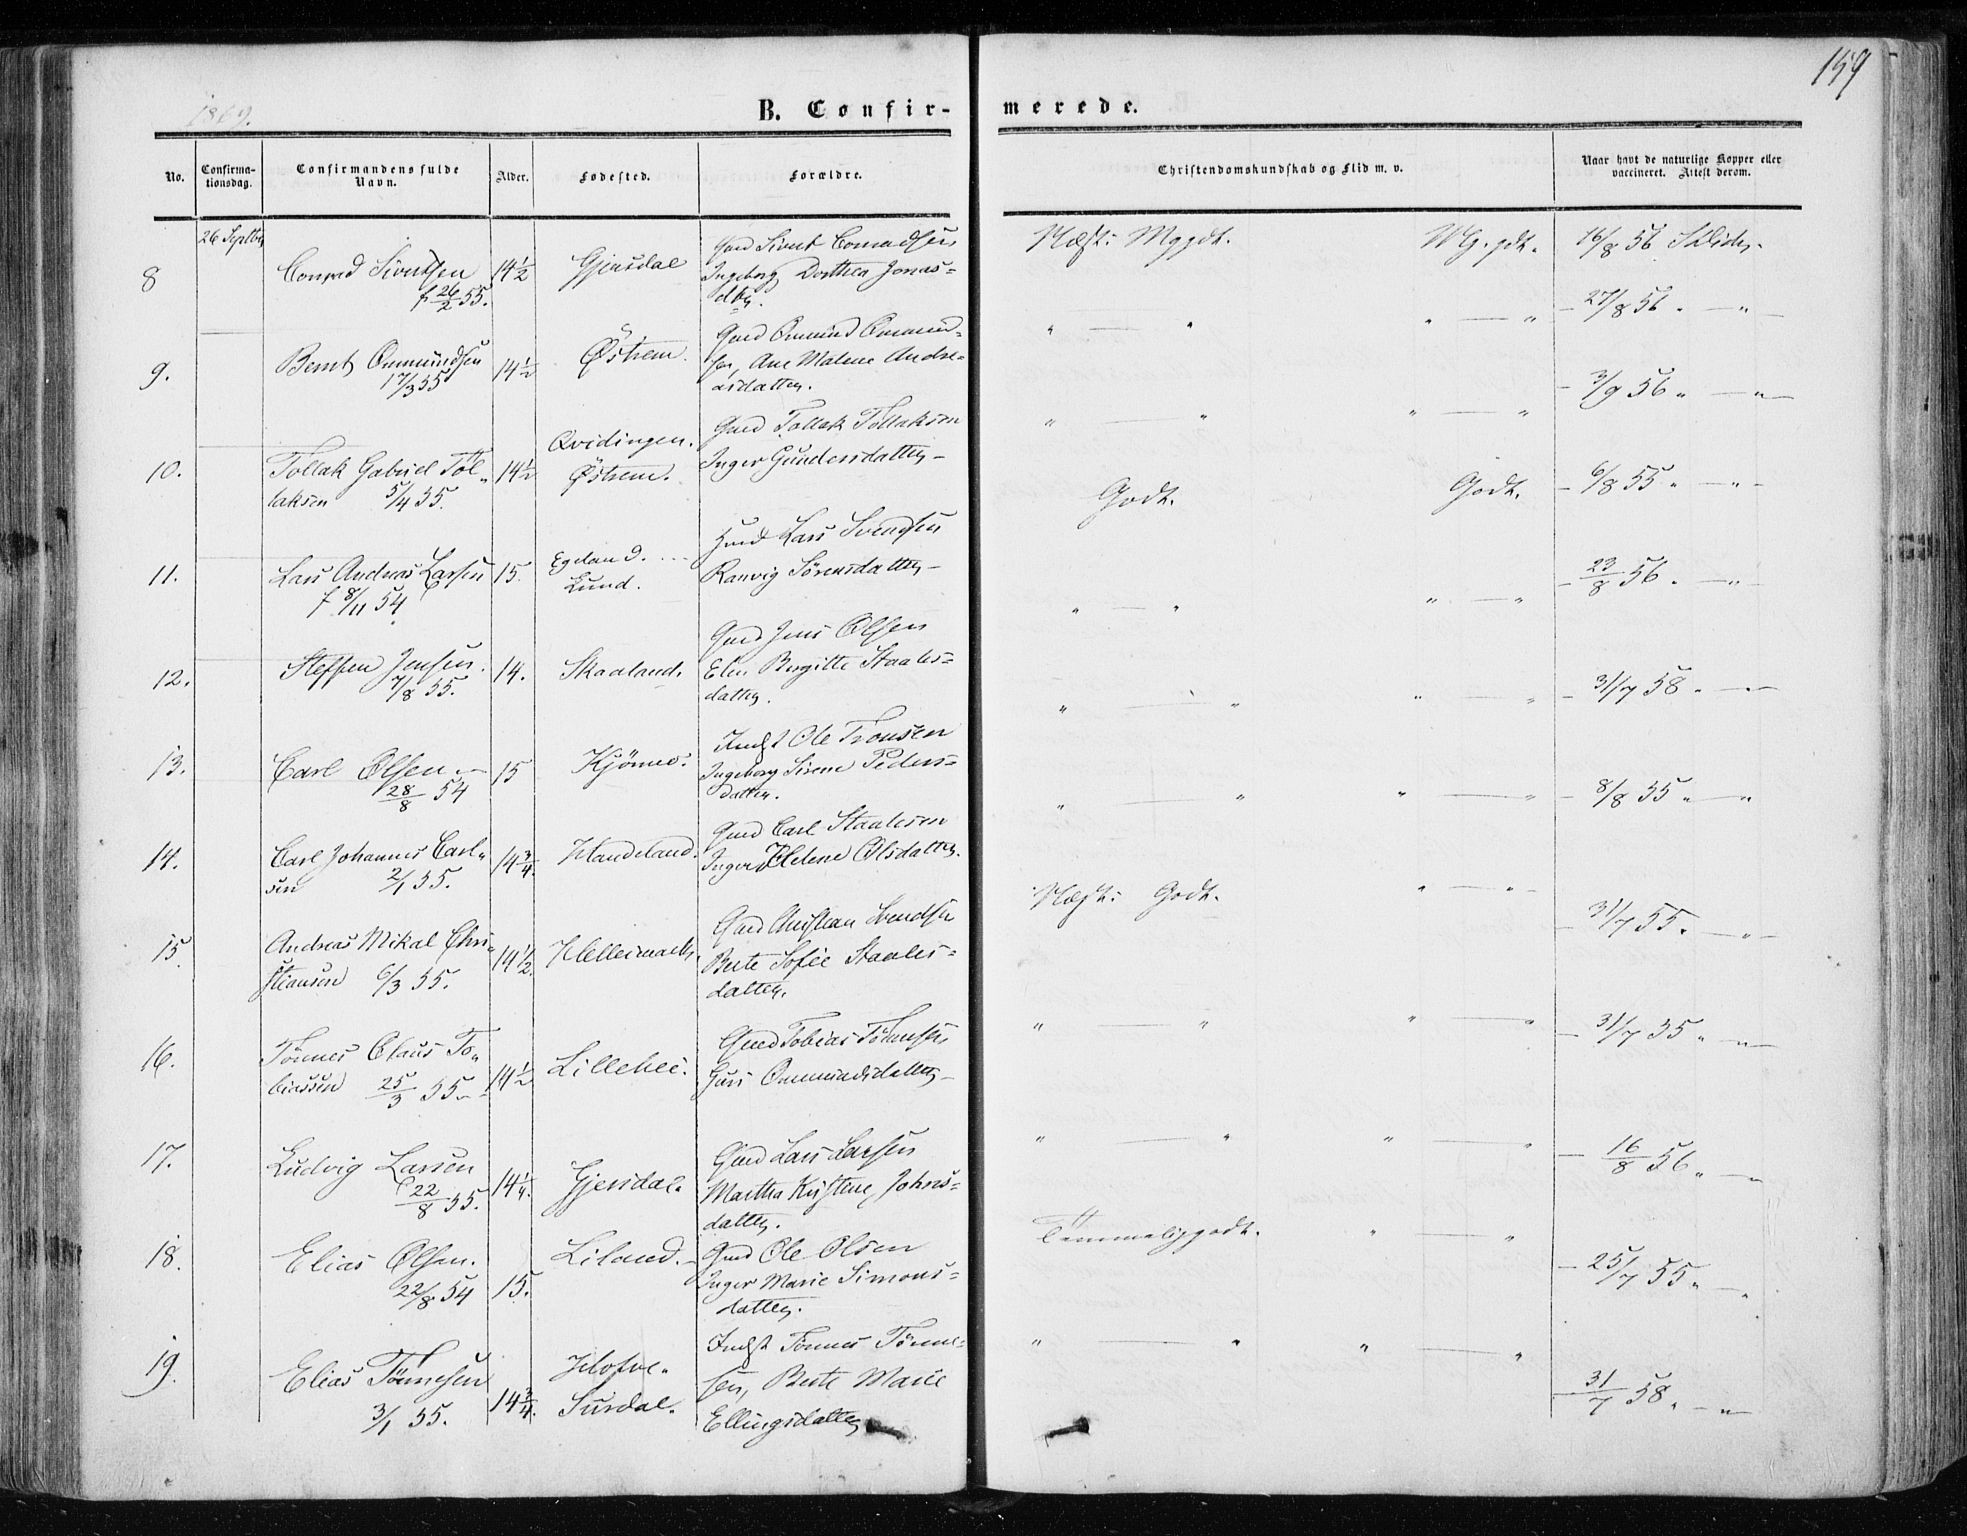 159
1869.
B. Confir-
merede.
No.
Confirma-
tionsdag.
Confirmandens fulde
Navn.
Alder.
Fødested.
Forældre.
Christendomskundskab og Flid m. v.
Naar havt de naturlige Kopper eller
vaccineret. Attest derom.
26 Septbr
8
Conrad Sivertsen
f 26/2 55.
14½
Gjersdal
Gmd Sivert Conradsen
Ingeborg Dorthea Jonas=
dtr.
Næst: Mg gdt.
Mg. gdt.
16/8 56
9.
Bernt Ommundsen
17/3 55
14½
Østrem.
Gmd Ommund Ommund-
sen, Ane Malene Andre-
asdatter.
" — "
" — "
- 27/8 56 " — " —
10.
Tollak Gabriel Tol-
laksen 5/4 55.
14½
Qvidingen.
Østrem.
Gmd Tollak Tollaksen
Inger Gundersdatter —
" — "
" — "
- 3/9 56 " — " —
11.
Lars Andreas Larsen
f 8/11 54
15.
Egeland.
Lund.
Lars Svendsen
Ranvig Sørensdatter —
Godt.
Godt.
- 6/8 55 " — " -
12.
Steffen Jensen.
7/8 55.
14.
Skaaland.
Gmd Jens Olsen
Elen Birgitte Staales=
datter.
" — "
" — "
- 23/8 56 " — " —
13.
Carl Olsen —
28/8 54
15
Indst Ole Tronsen
Ingeborg Sirene Peders=
datter.
" — "
" — "
- 31/7 58 " — " —
14.
Carl Johannes Carl-
sen 2/1 55.
14¾.
Haneland.
Gmd Carl Staalesen
Inger Helene Olsdatter.
" — "
" — "
- 8/8 55 " — "
15.
Andreas Mikal Chri-
stiansen 6/3 55.
14½.
Gmd Christian Svendsen
Berte Sofie Staales=
datter.
Næst: Godt.
" — " -
- 31/7 55. — " —
16.
Tønnes Claus To-
biassen 25/3 55 —
14½
Gmd Tobias Tønnesen
Guri Ommundsdatter —
" — "
" — "
- 31/7 55 " — " —
17.
Ludvig Larsen
22/8 55.
14¼.
Gjersdal.
Gmd Lars Larsen
Martha Kristine Johns=
datter.
" — "
" — "
- 16/8 56 " — " —
18.
Elias Olsen.
22/8 54
15.
Liland. —
Gmd Ole Olsen
Inger Marie Simons=
datter.
Temmelig godt.
" — "
- 25/7 55 " — "
19.
Elias Tønnesen
3/1 55.
14¾.
Surdal.
Indst Tønnes Tønne-
sen, Berte Marie
Ellingsdatter
" — "
" — "
- 31/7 58 " — " —